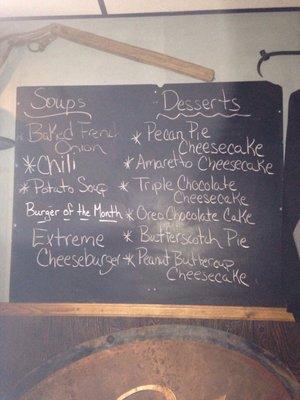 Soups
Baked French
Onion
* Chili
* Potato Soup
Burger of the Month
Extreme
Cheeseburger
Desserts
* Pecan Pie
Cheesecake
* Amaretto Cheesecake
* Triple Chocolate
Cheesecake
* Oreo Chocolate Cake
* Butterscotch Pie
* Peanut Buttercup
Cheesecake